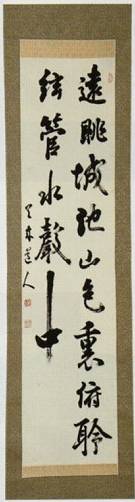 遠眺城池山色裏俯聆
絃管水聲中
道人